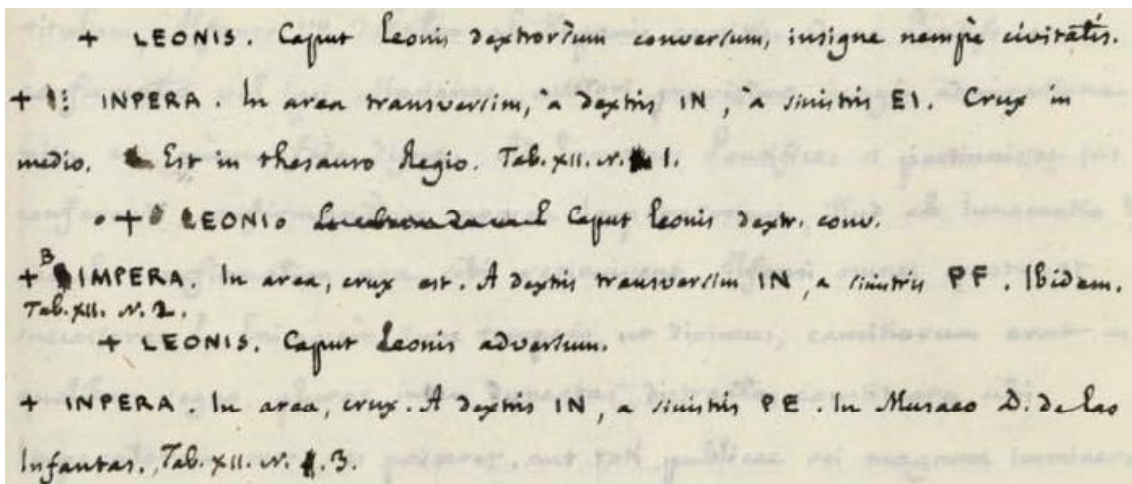 + LEONIS. Caput leonis dextrorsum conversum, insigne nempè civitatis.
+ INPERA. In area transversim, a dextris IN, a sinistris EI. Crux in
medio. Est in thesauro Regio. Tab. XII. N. 1.
+ LEONIO Caput leonis dextr. conv.
+ B IMPERA. In area, crux est. A dextris transversim IN, a sinistris PF. Ibidem.
Tab. XII. N. 2.
+ LEONIS. Caput Leonis adversum.
+ INPERA. In area, crux. A dextris IN, a sinistris PE. In Musaeo D. de las
Infantas, Tab. XII. N. 3.